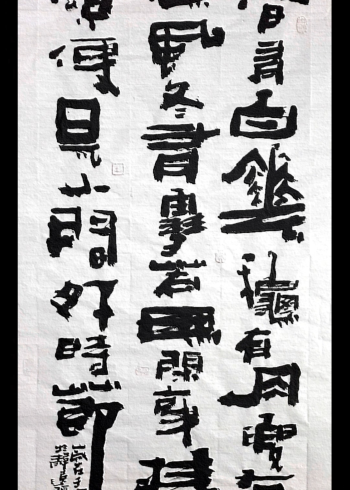 春有百花龝有月夏有
風冬有雪若無閑事
便是人間好時節